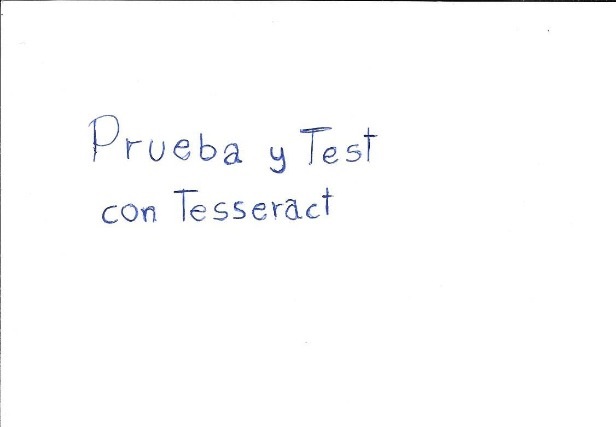 Prueba y Test
con Tesseract